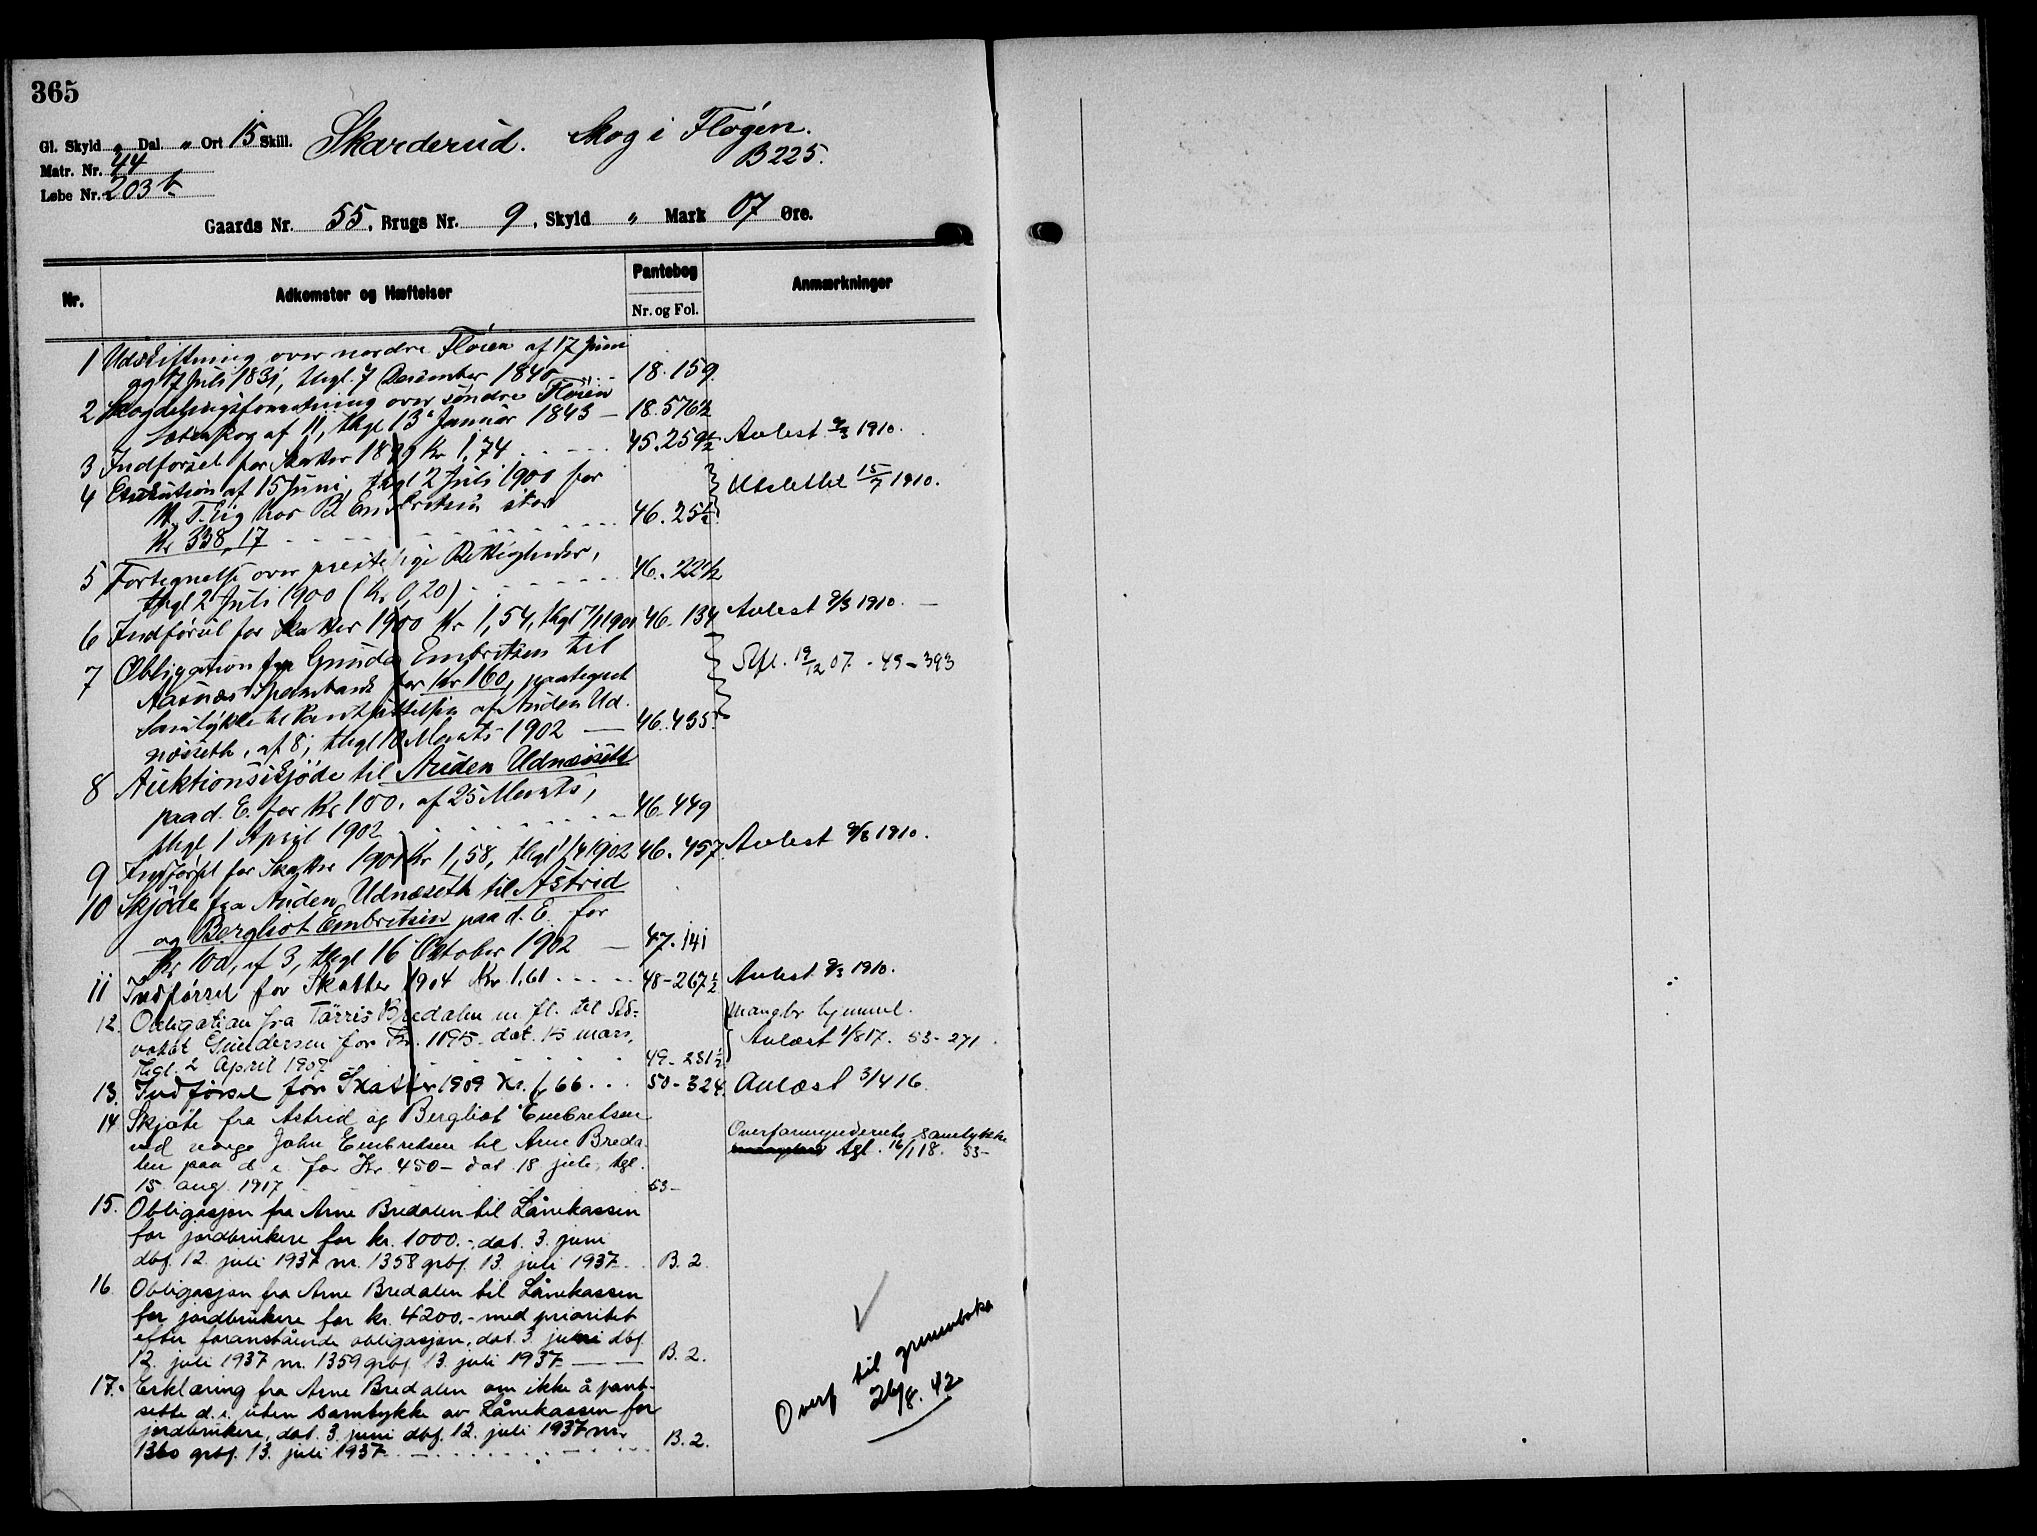 365
Gl. Skyld " Dal. " Ort 15 Skill. Skarderud. Skog i Fløgen.
Matr. Nr. 44 B 225.
Løbe Nr. 203 b
Gaards Nr. 55, Brugs Nr. 9, Skyld " Mark 07 Øre.
Nr. Adkomster og Hæftelser Pantebog Nr. og Fol. Anmærkninger
1 Udskiftning over nordre Fløien af 17 Juni
og 17 Juli 1831, thgl. 7 December 1840 18. 159.
2 Skogdelingsforretning over søndre Fløien
Sæterskog af 11, thgl 13 Januar 1843 — 18. 576 1/2
3 Indførsel for Skatter 1899 Kr 1,74 . . . . 45. 259 1/2 Avlest 9/3 1910.
4 Execution af 15 Juni, thgl 2 Juli 1900 for
hos Embretsen stor
Kr 338,17 - - - - 46. 25 1/2 Utslettet 15/7 1910.
5 Fortegnelse over prestelige Rettigheder,
thgl 2 Juli 1900 (Kr 0,20) - - - 46. 22 1/2
6 Indførsel for Skatter 1900 Kr 1,54, thgl 17/1 1901 46. 134 Avlest 9/3 1910. —
7 Obligation fra Gunda Embretsen til
Aasnæs Sparebank for Kr 160, paategnet
Samtykke til Pantsættelsen af Auden Ud-
næseth, af 8, thgl 10 Marts 1902 — 46. 435. Afl. 19/12 07. - 49 - 393
8 Auktionsskjøde til Auden Udnæseth
paa d. E. for Kr 100. af 25 Marts,
thgl 1 April 1902 - - - 46. 449
9 Indførsel for Skatter 1901 Kr 1,58, thgl 1/4 1902 46. 457 Avlest 9/3 1910.
10 Skjøde fra Auden Udnæseth til Astrid
og Bergliot Embretsen paa d. E. for
Kr 100, af 3, thgl 16 Oktober 1902 — 47. 141
11 Indførsel for Skatter 1904 Kr 1.61 . . . . 48 - 267 1/2 Avlest 9/3 1910.
12. Obligation fra Tarris Bredalen m. fl. til Ad-
vokat Gundersen for Kr. 1195 - dat. 15 mars,
thgl. 2 April 1907 . . . 49 - 231 1/2 Mangler hjemmel.
Avlæst 1/8 17. 53 - 271.
13. Indførsel for Skatter 1909 Kr. 1,66 . . . 50 - 324. Avlæst 3/4 16.
14 Skjøte fra Astrid og Bergliot Embretsen
ved verge John Embretsen til Arne Breda-
len paa d. e. for Kr. 450 - dat. 18 juli, tgl.
15. aug. 1917 . . . 53 - Overformynderiets samtykke
tgl. 16/1 18. 53 -
15. Obligasjon fra Arne Bredalen til Lånekassen
for jordbrukere for kr. 1000.-, dat. 3. juni
dbf. 12. juli 1937 nr. 1358 grbf. 13. juli 1937. . B. 2.
16. Obligasjon fra Arne Bredalen til Lånekassen
for jordbrukere for kr. 4200.- med prioritet
efter foranstående obligasjon, dat. 3. juni dbf.
12. juli 1937 nr. 1359 grbf. 13. juli 1937 — — B. 2.
17. Erklæring fra Arne Bredalen om ikke å pant-
sette d. e. uten samtykke av Lånekassen for
jordbrukere, dat. 3. juni dbf. 12. juli 1937 nr.
1360 grbf. 13. juli 1937 . . . . B. 2.
Overf til grunnboka
26/8. 42